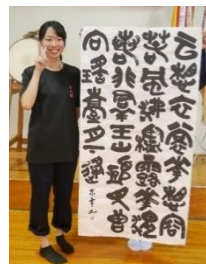 云想衣裳花想容
春風拂檻露華濃
若非羣玉山頭見會
向瑤臺月下逢